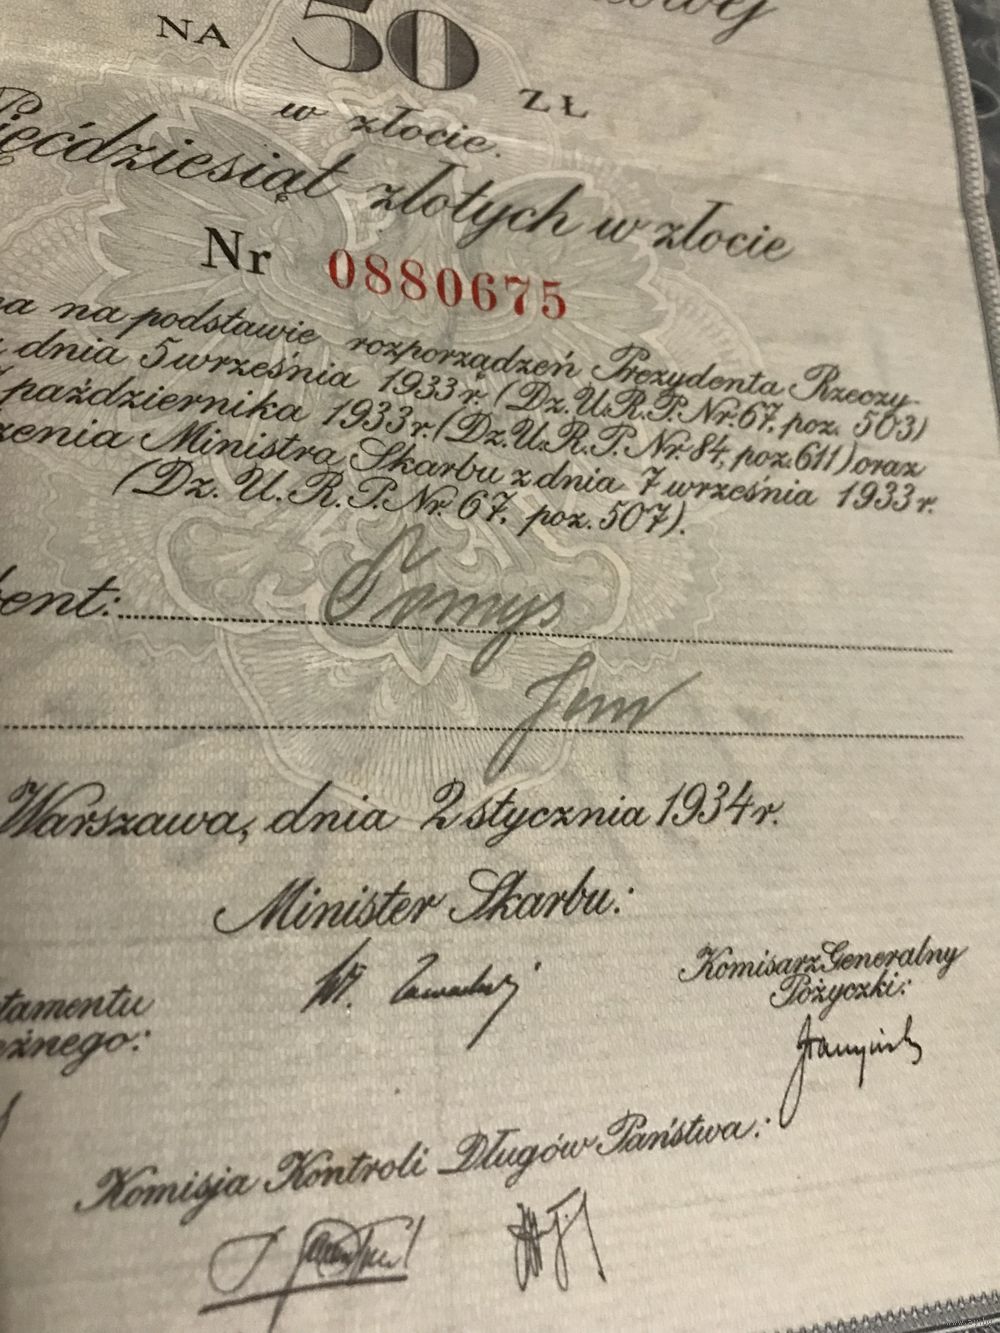 NA 50 ZŁ
w złocie.
Pięćdziesiąt złotych w złocie
Nr 0880675
na podstawie rozporządzeń Prezydenta Rzeczy-
dnia 5 września 1933 r. (Dz. U. R. P. Nr. 67, poz. 503)
października 1933 r. (Dz. U. R. P. Nr. 84, poz. 611) oraz
zenia Ministra Skarbu z dnia 7 września 1933 r.
(Dz. U. R. P. Nr. 67, poz. 507).
ent:
Warszawa, dnia 2 stycznia 1934 r.
Minister Skarbu:
Komisarz Generalny
Pożyczki:
tamentu
eżnego:
Komisja Kontroli Długów Państwa: